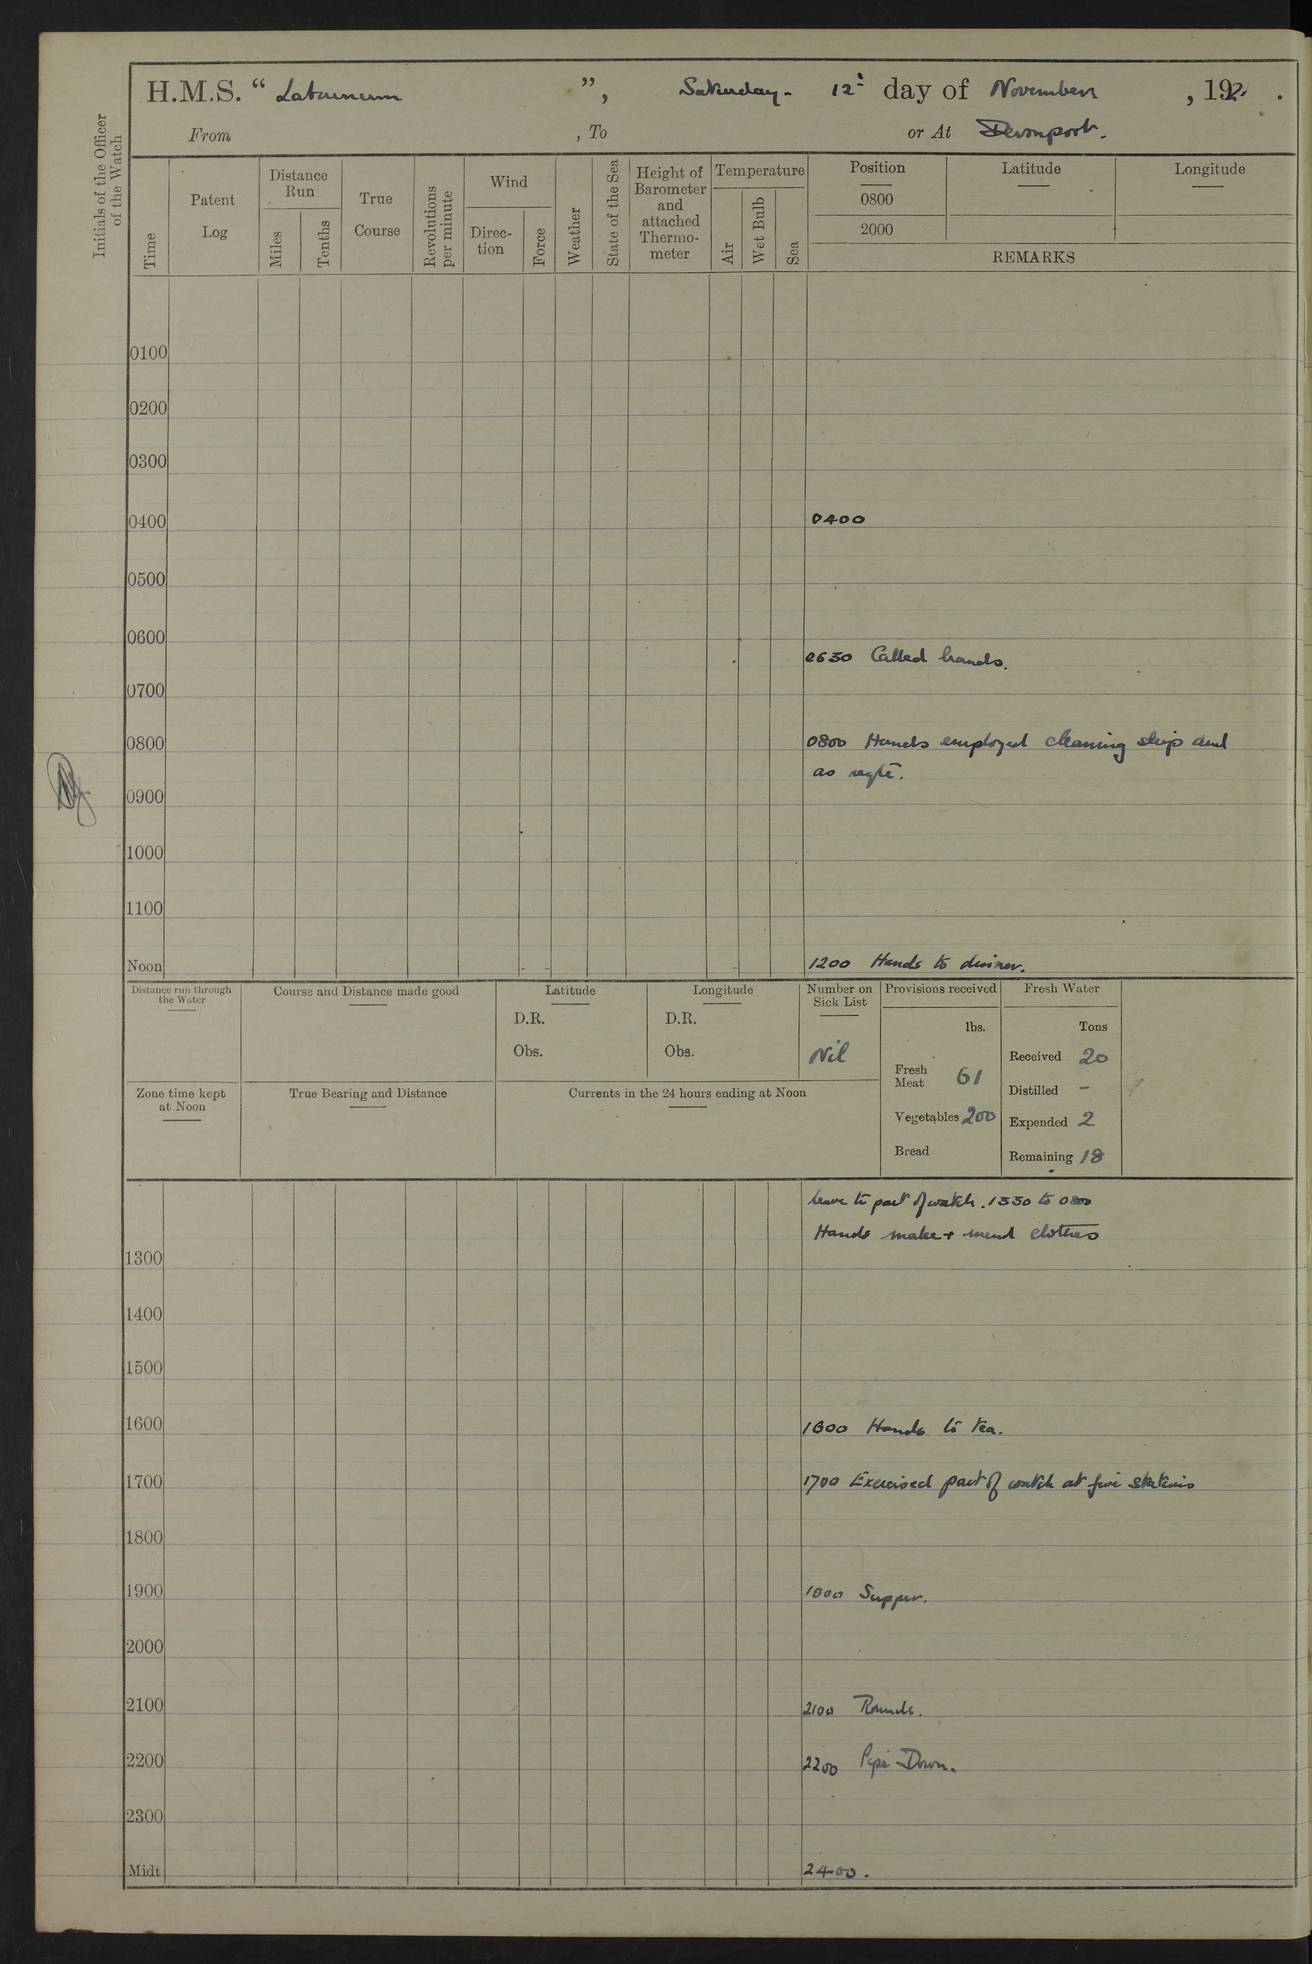 H.M.S. “ Laburnum ”, Saturday - 12th day of November, 192.
From , To or At Devonport.
Initials of the Officer of the Watch
Time
Patent Log
Distance Run
Miles
Tenths
True Course
Revolutions per minute
Wind
Direc-tion
Force
Weather
State of the Sea
Height of Barometer and attached Thermo-meter
Temperature
Air
Wet Bulb
Sea
Position Latitude Longitude
0800
2000
REMARKS
0100
0200
0300
0400 0400
0500
0600
0630 Called hands.
0700
0800 0800 Hands employed cleaning ship and
as reqte.
0900
1000
1100
Noon 1200 Hands to dinner.
Distance run through the Water
Course and Distance made good
Latitude
D.R.
Obs.
Longitude
D.R.
Obs.
Number on Sick List
Nil
Provisions received
lbs.
Fresh Meat 61
Vegetables 200
Bread
Fresh Water
Tons
Received 20
Distilled -
Expended 2
Remaining 18
Zone time kept at Noon
True Bearing and Distance
Currents in the 24 hours ending at Noon
leave to part of watch. 1330 to 0800
Hands make + mend clothes
1300
1400
1500
1600 1600 Hands to tea.
1700 1700 Exercised part of watch at fire stations
1800
1900 1900 Supper.
2000
2100 2100 Rounds.
2200 2200 Pipe Down.
2300
Midt 2400.